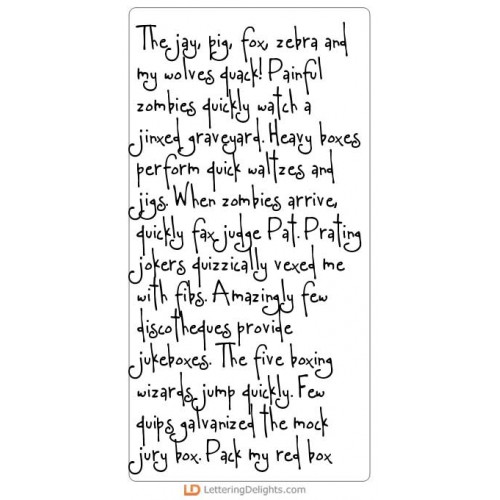 The jay, pig, fox, zebra and
my wolves quack! Painful
zombies quickly watch a
jinxed graveyard. Heavy boxes
perform quick waltzes and
jigs. When zombies arrive,
quickly fax judge Pat. Prating
jokers quizzically vexed me
with fibs. Amazingly few
discotheques provide
jukeboxes. The five boxing
wizards jump quickly. Few
quips galvanized the mock
jury box. Pack my red box
LD LetteringDelights.com